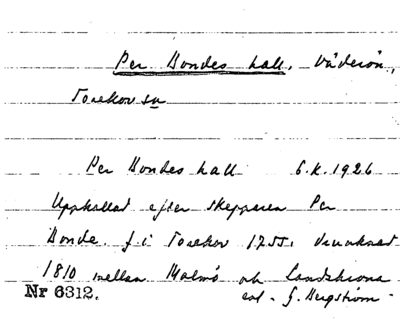 Per Bondes hall, Väderön,
Torekov sn
Per Bondes hall 6.X.1926
Uppkallad efter skepparen Per
Bonde f. i Torekov 1755, drunknad
1810 mellan Malmö och Landskrona
Nr 6312. enl. G. Bergström.